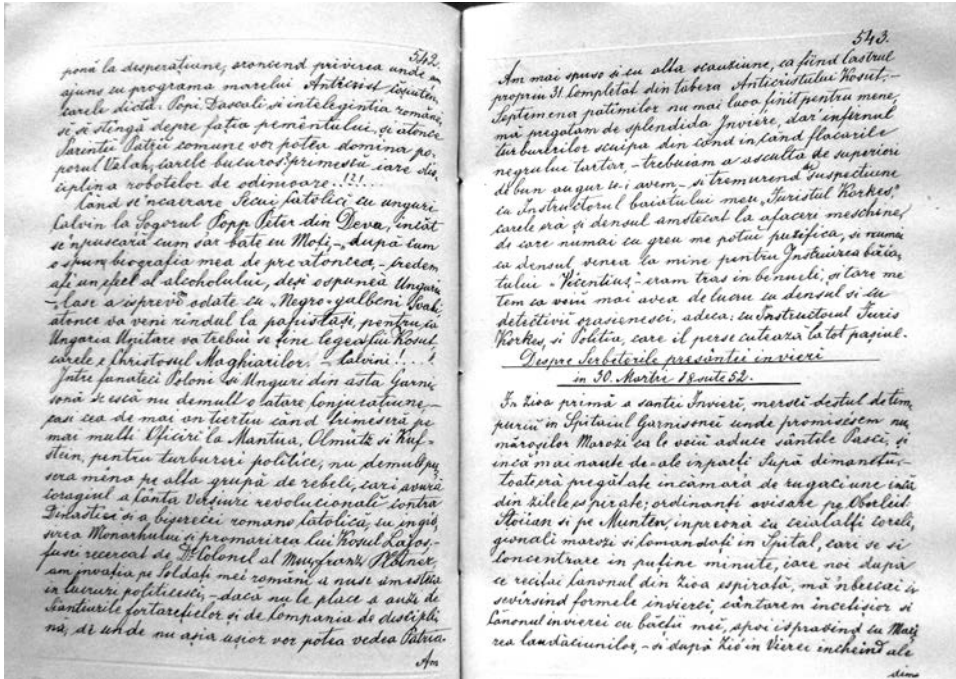 542.
până la desperațiune, sconcind privirea unde am
ajuns cu programa marelui Anticrist
carele dicta: Popi, Dascali și inteligintia română,
se se stingă depre fația pementului, și atonce
Parentii Patrii comune vor potea domina po-
porul Valah, carele bucuros primescu iare dis-
ciplina robotelor de odinioare..!?!..
Cand se'ncaerare Secui Catolici cu unguri
Calvin la Sogorul Popp Peter din Deva, incăt
se'npuscară cum s'ar bate cu Moți, după cum
o spune biografia mea de pre atoncea, - credem
a fi un efect al alcoholului, deși o spunea Ungari
- Lase a isprevi odate cu "Negro-galbeni Svabi"
atonce va veni rindul la papistași, pentru ca
Ungaria Unitare va trebui se fine legea lui Kosut
carele e Christosul Maghiarilor - Calvini!...
Intre fanateci Poloni si Unguri din asta Garni-
sonă se iscă nu demult o atare Conjuratiune,-
casi cea de mai an tiertiu cănd trimeseră pe
mai multi Oficiri la Mantua, Olmütz si Kuf-
stein, pentru turbureri politice, nu demult pu-
sera mâna pe alta grupă de rebeli, cari avură
coragiul a cânta Versiuri revolucionali contra
Dinastiei si a bisericei romano Catolică, cu
Monarhului si promarirea lui Kosut Laios,-
fusei recercat de Dl Colonel al Franz
am invația pe Soldați mei români a nuse amesteca
in lucruri politicesci, - dacă nu le place a auzi de
Șantiurile fortarețielor și de Compania de discipli-
nă, de unde nu așia ușior vor potea vedea Patria.
Am
543.
Am mai spuso si cu alta ocauziune, ca fiind Castrul
propriu 31. Completat din tabera Anticristului Kosut,-
Septemena patimilor nu mai lua finit pentru mene,
mă pregatam de splendida Inviere, dar infernul
turburărilor scuipa din cănd in cănd flacarile
negrului tartar, - trebuiam a asculta de superiori
de bun augur ce-i avem, - si tremurend de suspectiune
cu Instructorul baiatului meu "Juristul Korkes,"
carele eră și densul amstecat la afaceri meschine,
de care numai cu greu me potui purifica, si numai
ca densul venea la mine pentru Instruirea băia-
tului "Vicentius", - eram tras in benueli, și tare me
tem ca voiu mai avea de lucru cu densul si cu
detectivii orasienesci, adeca: cu Instructorul Juris
Korkes, si Politia, care il persecutează la tot pasiul.
Despre Serbetorile presântei invieri
in 30. Martie 18 sute 52.
In Ziva primă a santei Invieri, mersei destul de tim-
puriu in Spitalul Garnisonei unde promisesem nu-
măroșilor Marozi ca le voiu aduce sântele Pasci, și
incă mai nante de-ale inparti după dimanétă,-
toate era pregătate in cămara de rugaciune incă
din zilele espirate; ordinanți avisare pe Oberleit
Stoian si pe Muntén, inpreonă cu ceialalți coreli-
gionali marozi si Comandați in Spital, cari se si
concentrare in puține minute, care noi după
ce recitai Canonul din Ziva espirată, mă 'nbrecai
sevirsind formele invierei, cântarem incetisior si
Canonul invierei cu băcții mei, apoi ispravind cu Măi-
rea laudăciunilor, - si după Zio in Vierei incheind ale
dima